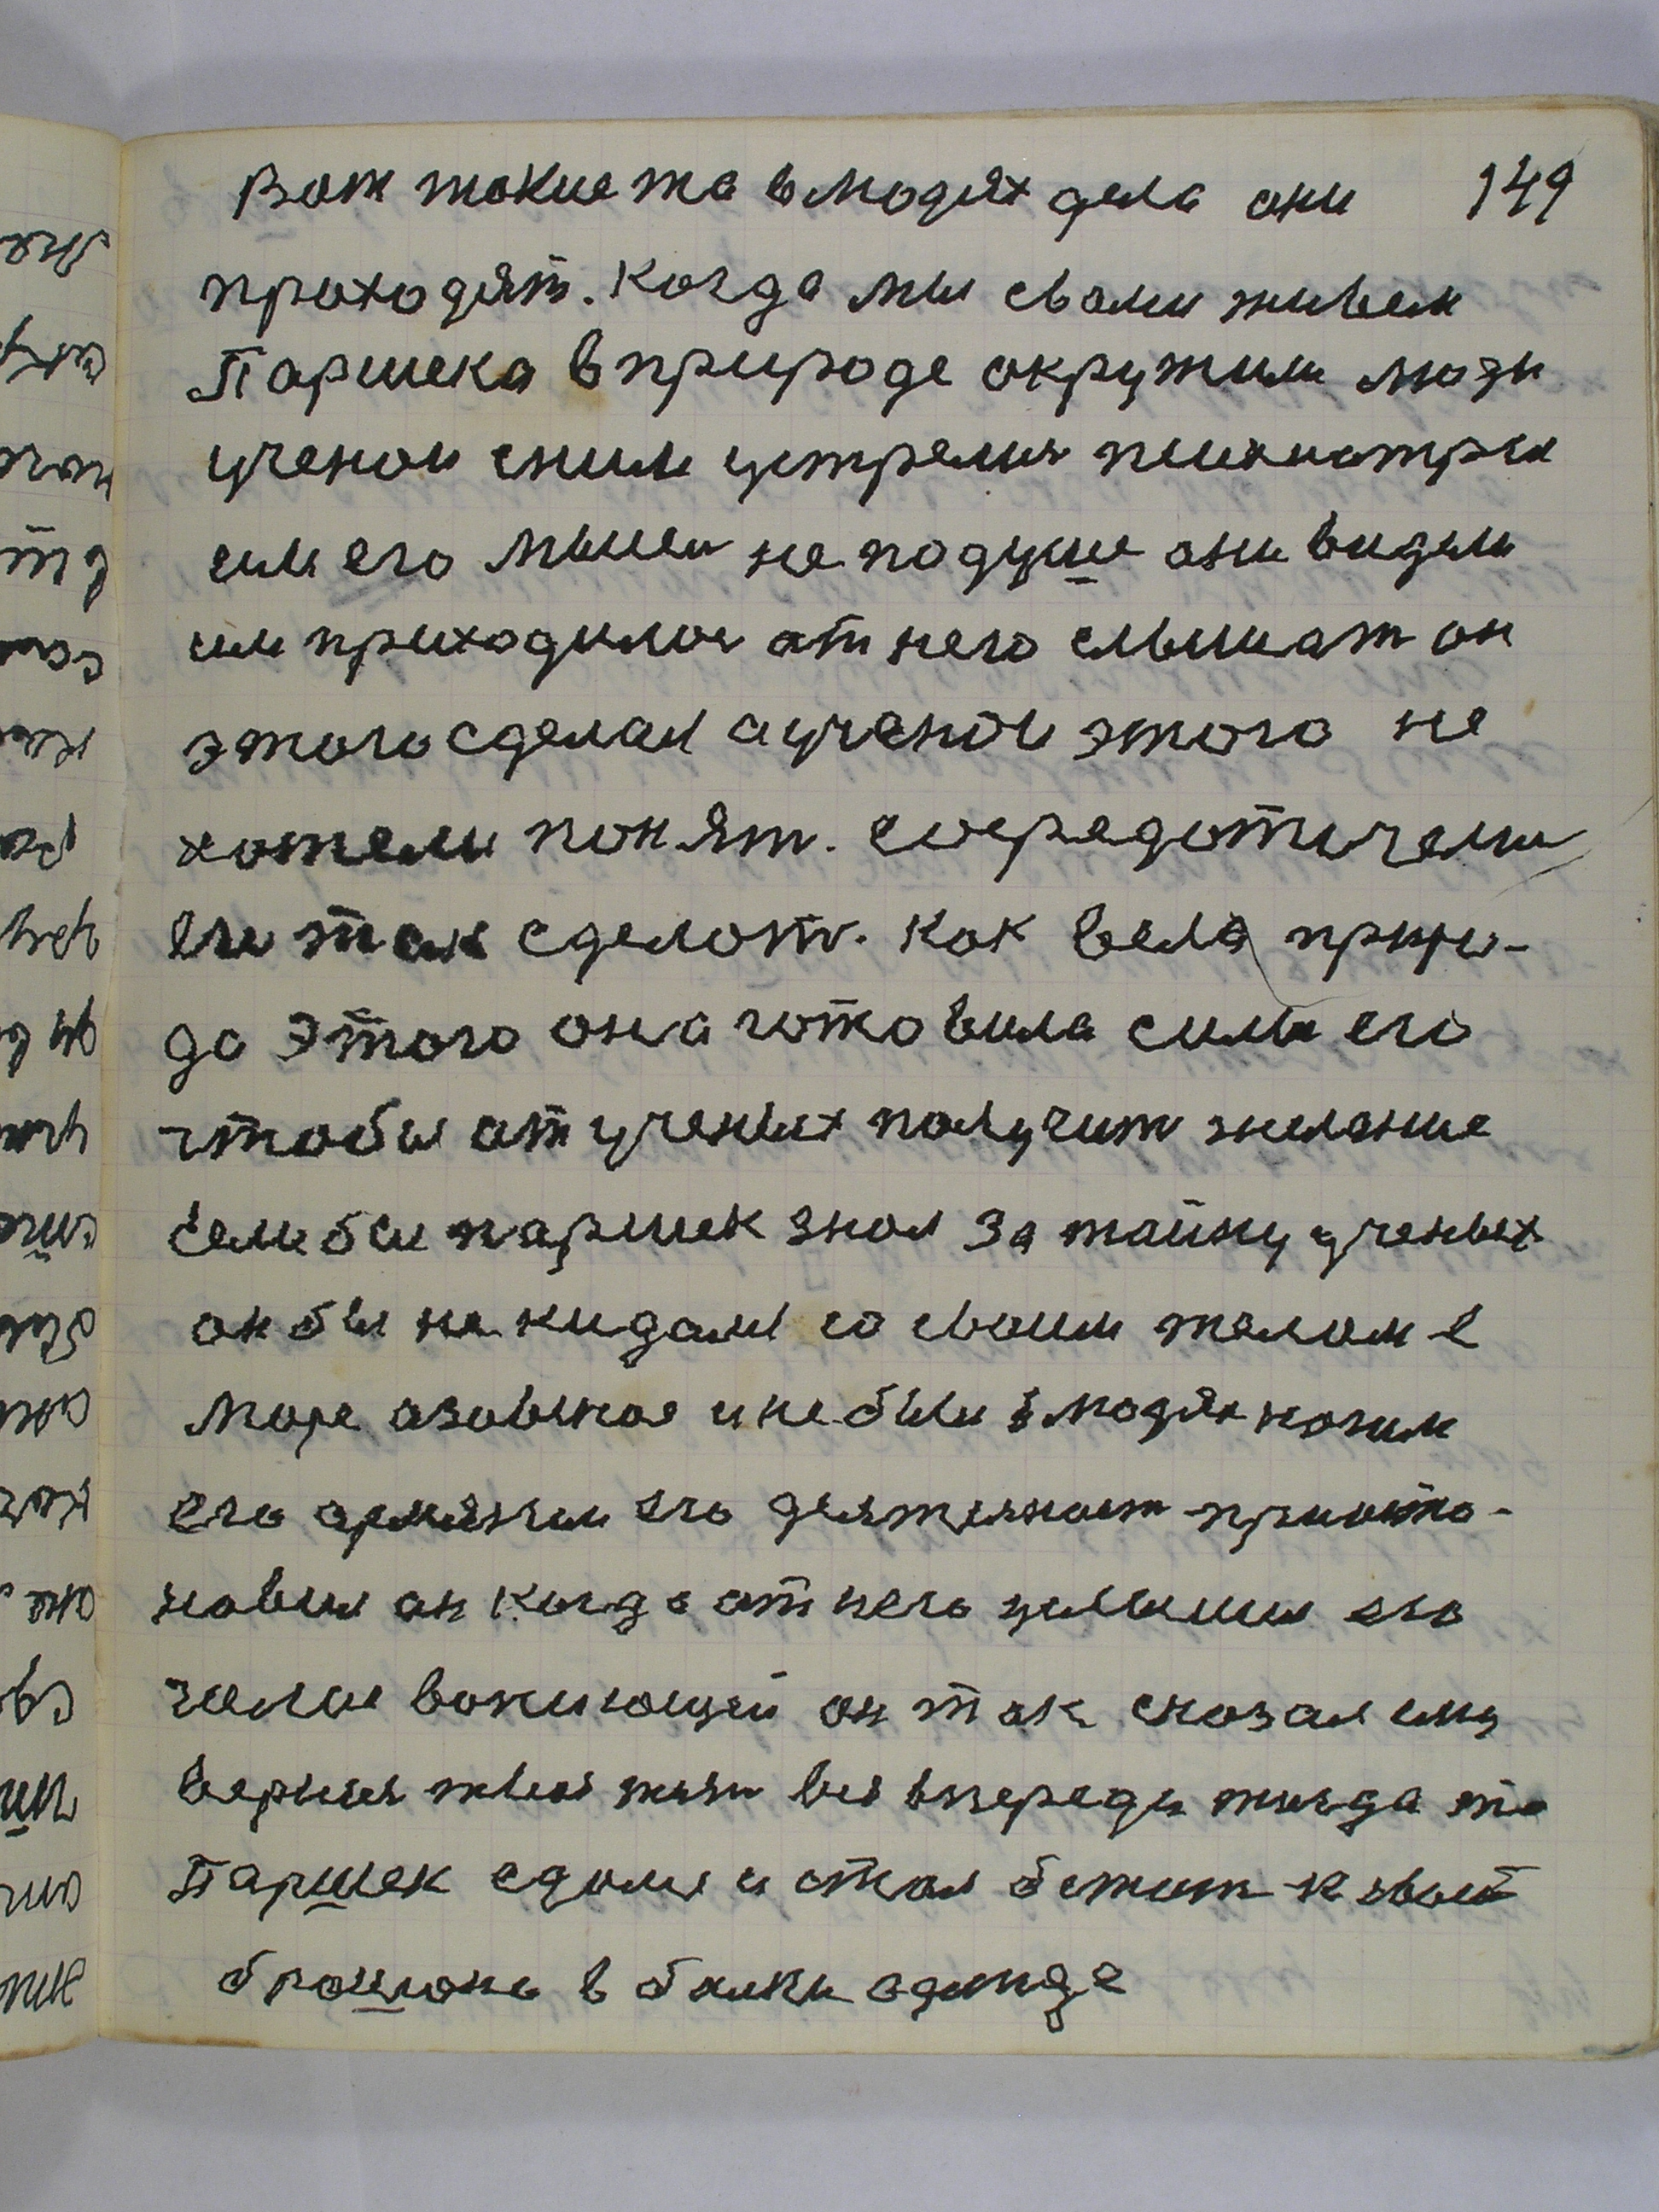 Вот такие та в людях дела они 149
проходят. Когда мы с вами живем
Паршека в природе окружили люди
ученои сними устремил психиатрии
им его мысли не подуше они видели
им приходилос от него слышат он
этого сделал а ученои этого не
хотели понят. сосредоточели
его так сделат. Как вела приро-
да этого она готовила силы его
чтобы от ученых получит желание
Если бы паршек знал за тайну ученых
он бы не кидался со своим телом в
море азовское и не были в людях
его его деятелност приоста-
новил он когда от него услышил его
голос вопиющий он так сказал ему
вернис твоя жизн вся впереди тогда то
Паршек здался и стал бежит к своей
брошоно в балки одежде